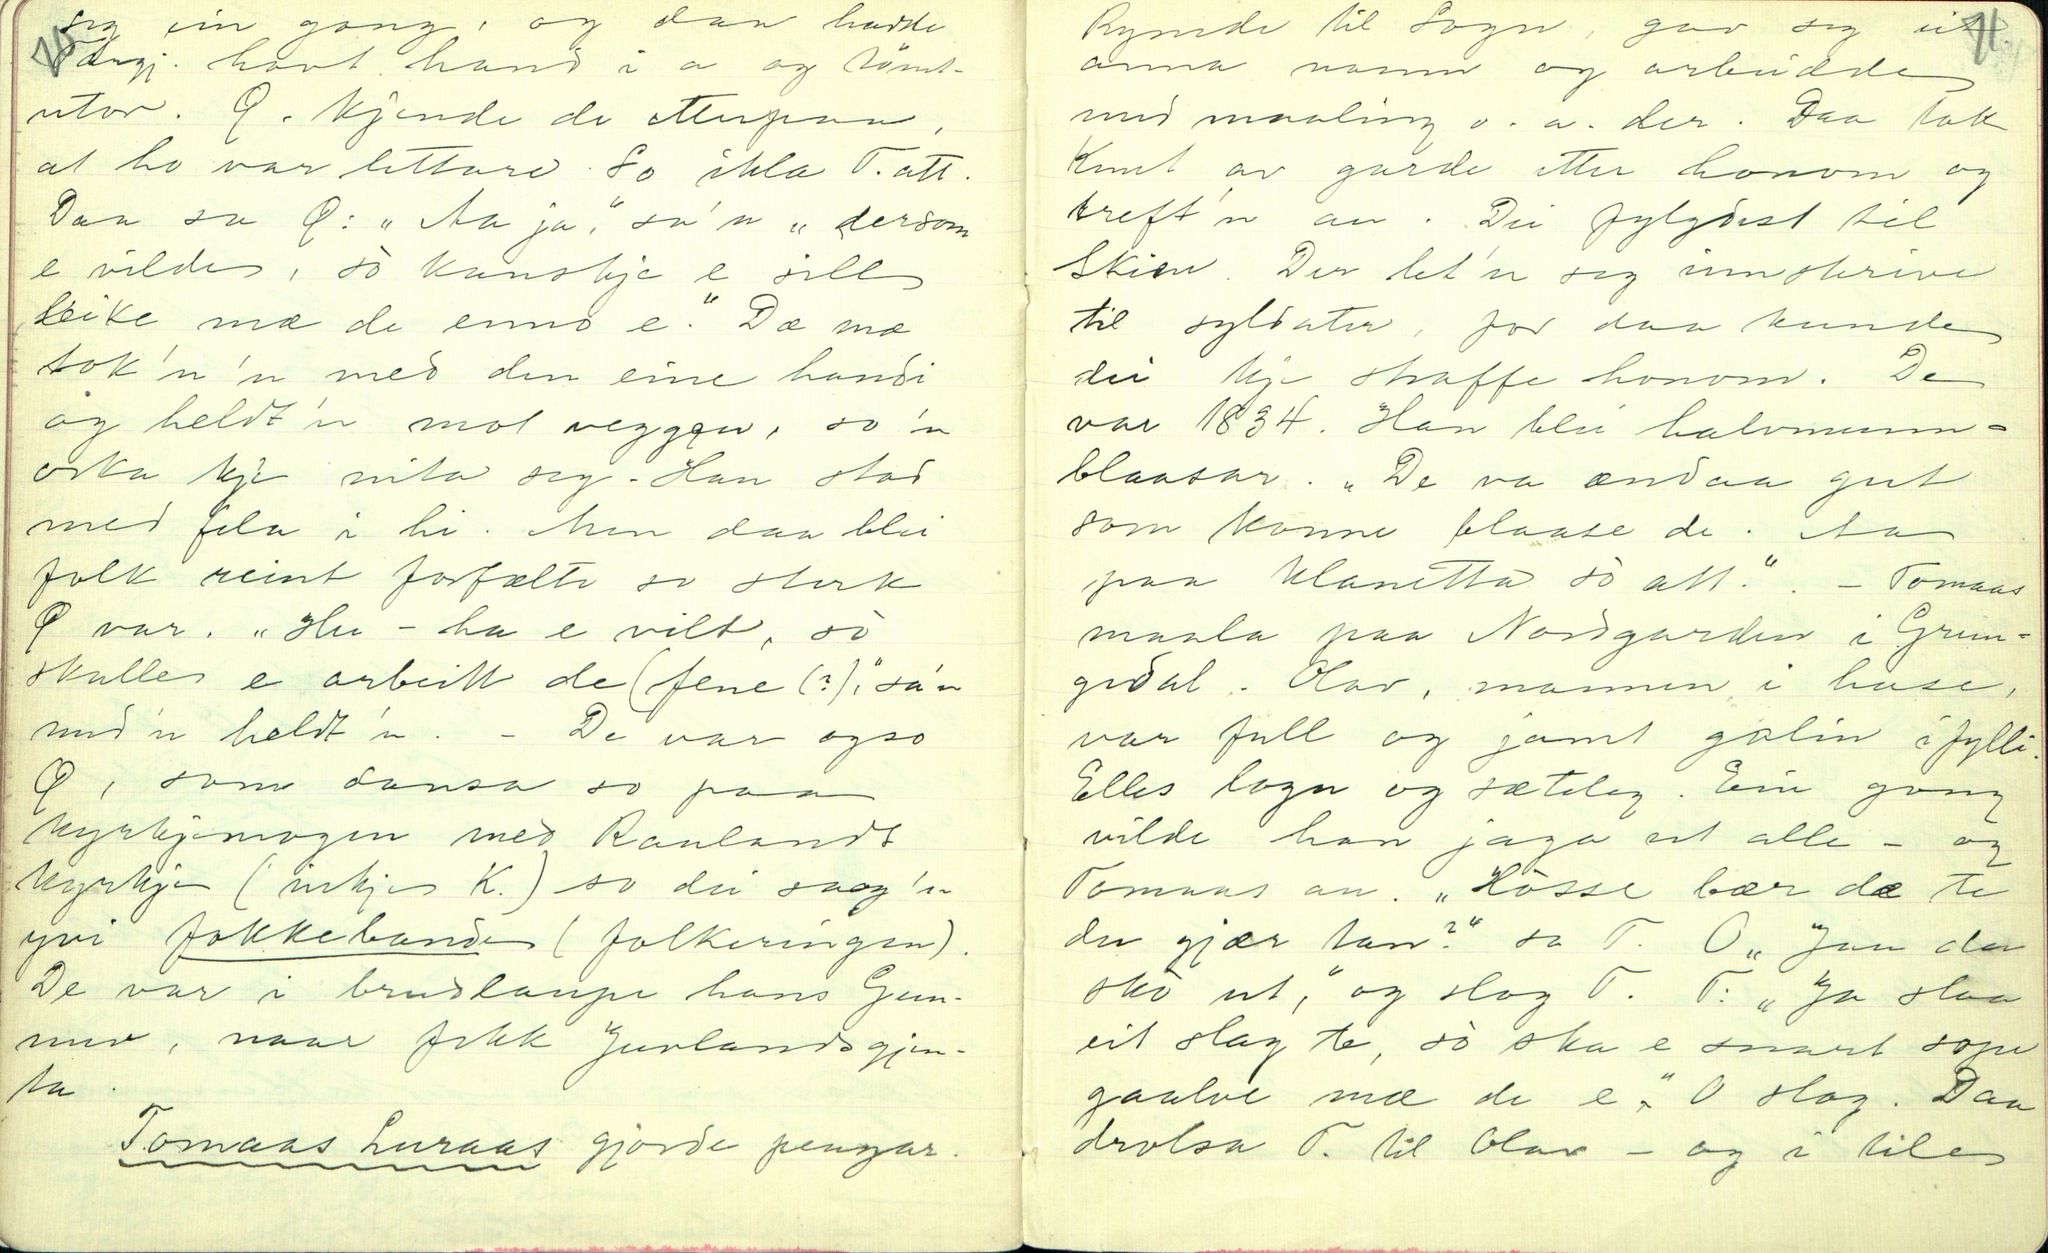 70
seg ein gong, og daa hadde
Tærgj. havt hand i a og tömt
utor. Ø. kjende de etterpaa,
at ho var lettare. So ikla T. att.
Daa sa Ø: „Aa ja," sa'n „dersom
e vilde, sò kanskje e sille
leike mæ de enno e." Dæ mæ
tok'n'n med den eine handi
og heldt'n mot veggen, so'n
orka kje rita seg. Han stod
med fela i hi. Men daa blei
folk reint forfælte so sterk
Ø var. „Hu - ha e vilt, sò
skulle e arbeitt de (fene (?)," sa'n
med'n heldt'n. - De var ogso
Ø, som dansa so paa
kyrkjemogen med Raulands
kyrkje (inkje K.) so dei saag'n
yvi fokkebande (folkeringen).
De var i brudlaupe hans Gun-
nar, naar fekk Juvlandsgjen-
ta.
Tomaas Luraas gjorde pengar.
71
Rymde til Sogn, gav seg eit
anna namn og arbeidde
med maaling o. a. der. Daa tok
Knut av garde etter honom og
treft'n an. Dei fylgdest til
Skien. Der let'n seg innskrive
til syldater, for daa kunde
dei kje straffe honom. De
var 1834. Han blei halvmunn-
blaasar. „De va ændaa gut
som konne blaase de. Aa
paa klanetta sò att." - Tomaas
maala paa Nordgarden i Grun-
gedal. Olav, mannen i huse,
var full og jamt galin i fylli.
Elles logn og sæteleg. Ein gong
vilde han jaga ut alle - og
Tomaas au. „Hòsse bær dæ te
du gjær tan?" sa T. O „Jau du
skò ut," og slog T. T: „Ja slaa
eit slag te, sò ska e snart sope
gaalve mæ de e." O slog. Daa
drolsa T. til Olav - og i tile